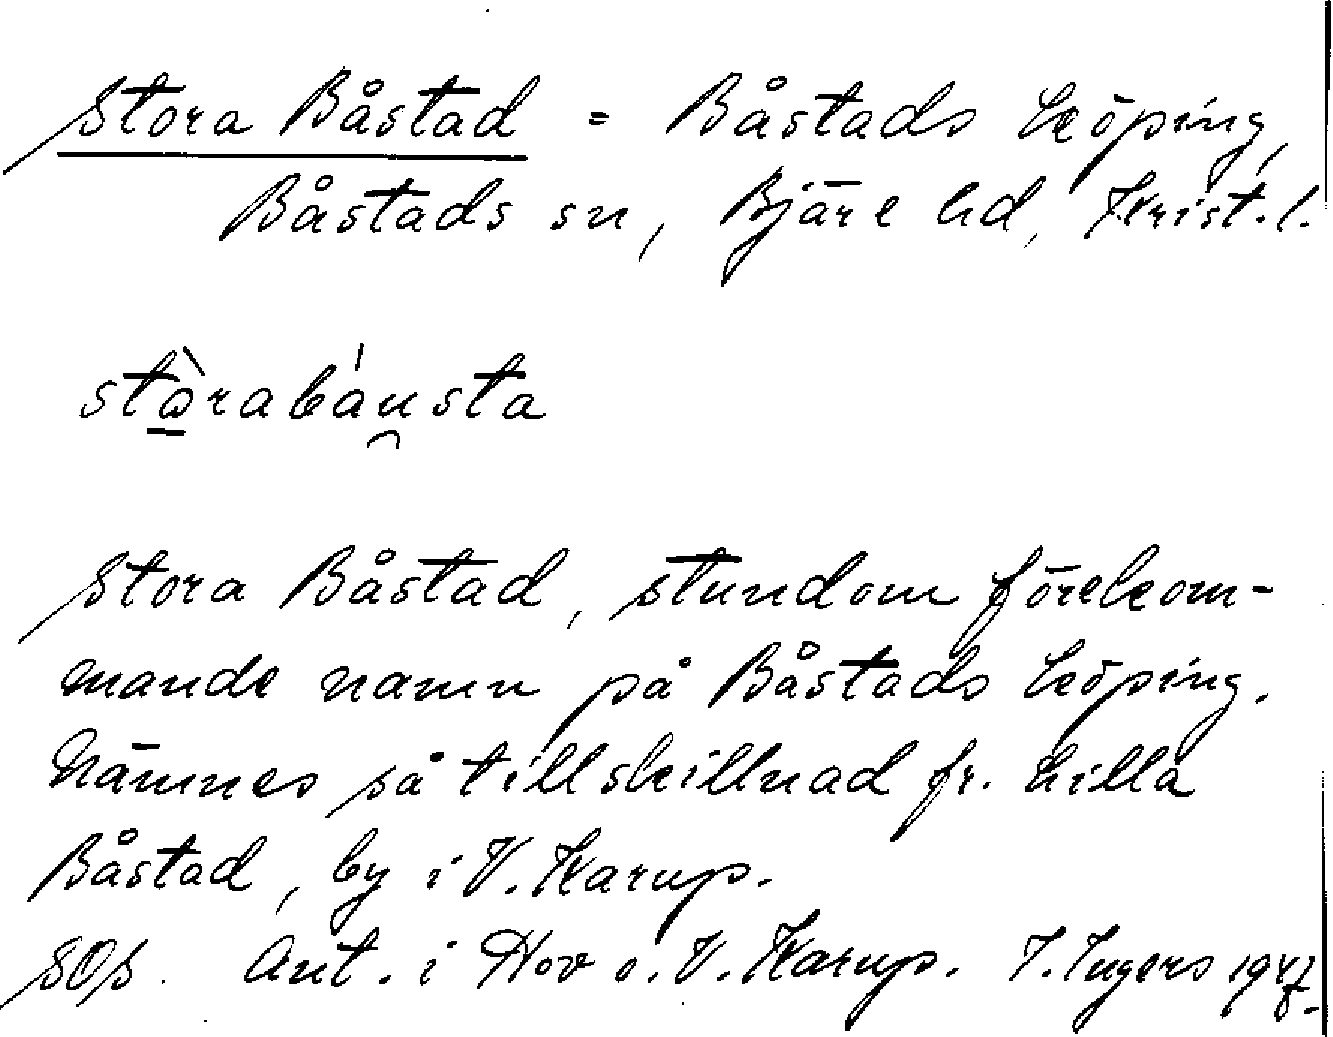 Stora Båstad = Båstads köping,
Båstads sn, Bjäre hd, Krist. l.
stòrabáu̯sta
Stora Båstad, stundom förekom-
mande namn på Båstads köping.
Nämnes på tillskillnad fr. Lilla
Båstad, by i V. Karup.
SOS. Ant. i Hov o. V. Karup. I. Ingers 1947.